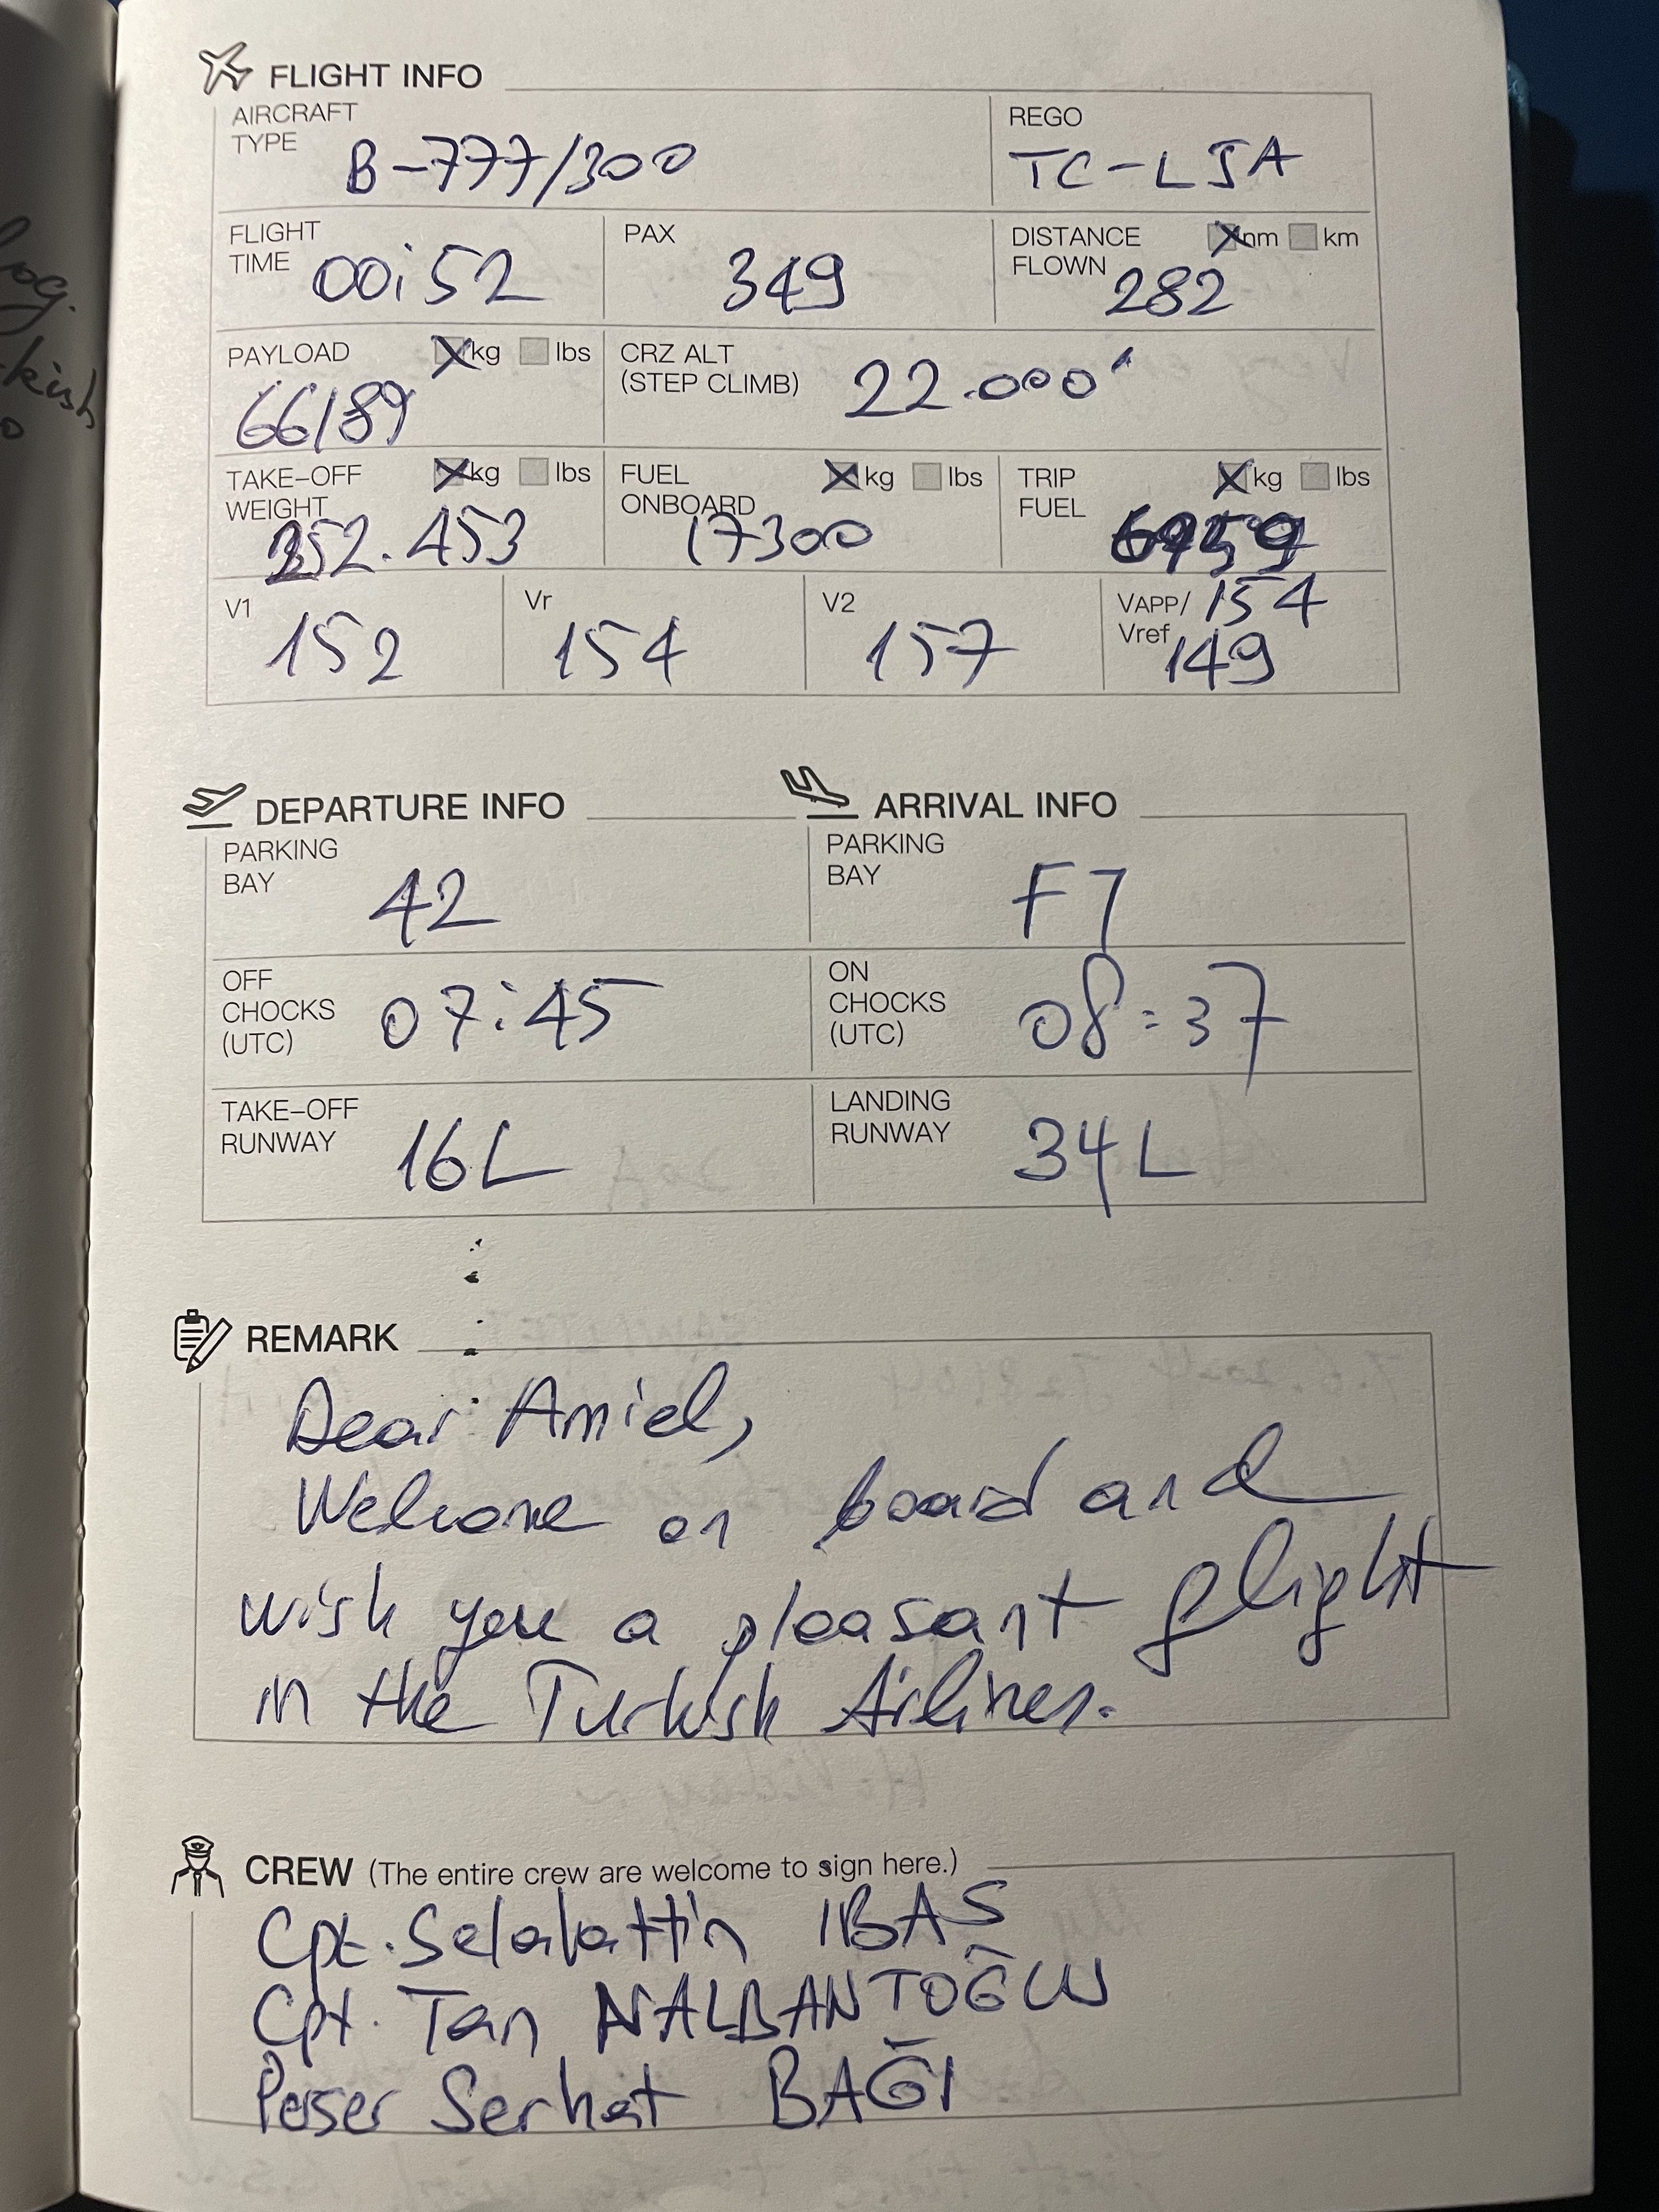 FLIGHT INFO
AIRCRAFT TYPE B-777/300
REGO TC-LJA
FLIGHT TIME 00:52
PAX 349
DISTANCE FLOWN nm km 282
PAYLOAD kg lbs 66189
CRZ ALT (STEP CLIMB) 22.000'
TAKE-OFF WEIGHT kg lbs 252.453
FUEL ONBOARD kg lbs 17300
TRIP FUEL kg lbs
V1 152
Vr 154
V2 157
VAPP/ 154
Vref 149
DEPARTURE INFO
ARRIVAL INFO
PARKING BAY 42
PARKING BAY F7
OFF CHOCKS (UTC) 07:45
ON CHOCKS (UTC) 08:37
TAKE-OFF RUNWAY 16L
LANDING RUNWAY 34L
REMARK
Dear Amiel,
Welcome on board and
wish you a pleasant flight
in the Turkish Airlines.
CREW (The entire crew are welcome to sign here.)
Cpt. Selalattin IBAS
Cpt. Tan NALBANTOĞLU
Serhat BAĞI